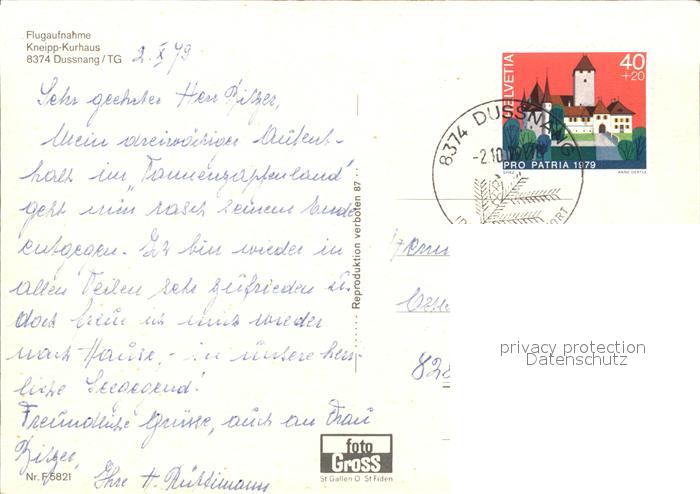 Flugaufnahme
Kneipp-Kurhaus
8374 Dussnang/TG
2. X 79
Sehr geehrter Herr Bitzer,
Mein dreiwöchiger Aufent-
halt im "Tannenzapfenland"
geht nun rasch seinem Ende
entgegen. Ich bin wieder in
allen Teilen sehr zufrieden u.
doch freue ich mich wieder
nach Hause, - in unsere herr-
liche Seegegend!
Freundliche Grüsse, auch an Frau
Bitzer,
Ihre H. Rüttimann
Nr. F 5821
foto
Gross
St Gallen O St Fiden
Reproduktion verboten 87
HELVETIA
40
+20
PRO PATRIA 1979
SPIEZ
8374 DUSSNANG
-2.10.79
Herrn
828
privacy protection
Datenschutz